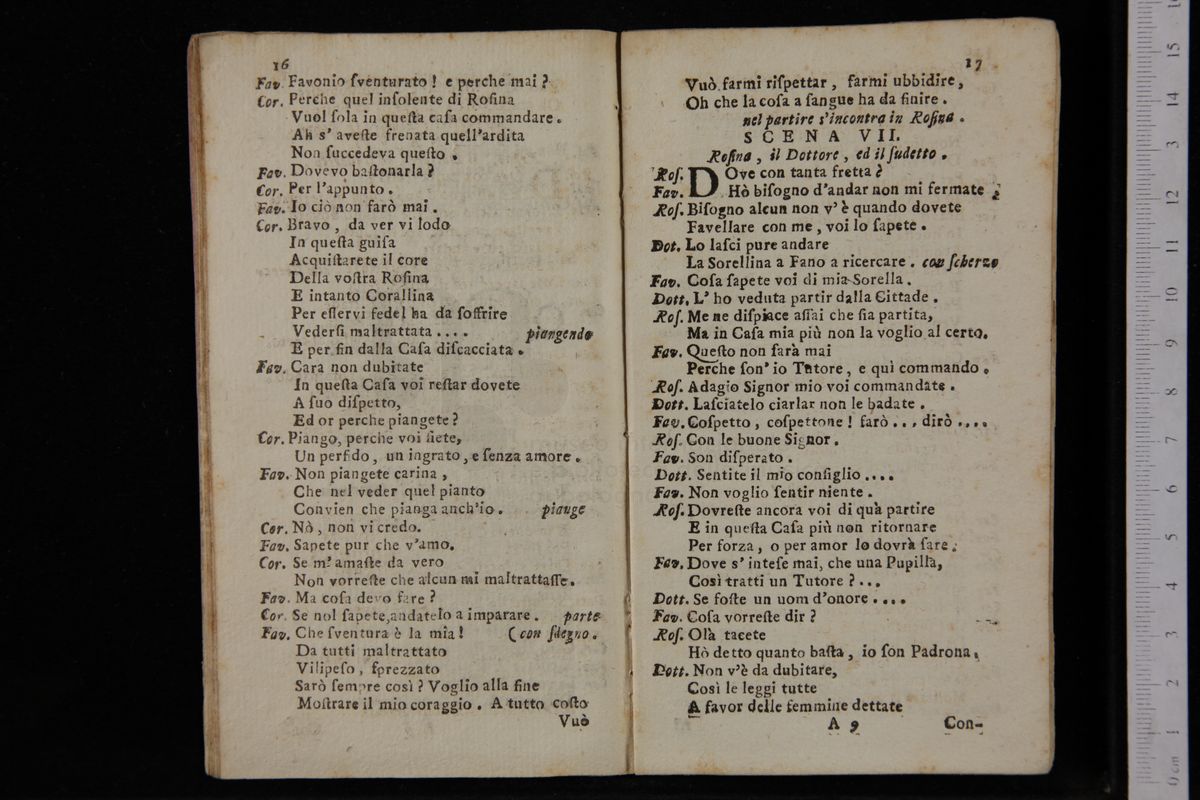 16
Fav. Favonio ſventurato ! e perche mai ?
Cor. Perche quel inſolente di Roſina
Vuol ſola in queſta caſa commandare .
Ah s' aveſte frenata quell'ardita
Non ſuccedeva queſto .
Fav. Dovevo baſtonarla ?
Cor. Per l'appunto .
Fav. Io ciò non farò mai .
Cor. Bravo , da ver vi lodo
In queſta guiſa
Acquiſtarete il core
Della voſtra Roſina
E intanto Corallina
Per eſſervi fedel ha da ſoffrire
Vederſi maltrattata . . . . piangendo
E per fin dalla Caſa diſcacciata .
Fav. Cara non dubitate
In queſta Caſa voi reſtar dovete
A ſuo diſpetto,
Ed or perche piangete ?
Cor. Piango, perche voi ſiete,
Un perfido , un ingrato , e ſenza amore .
Fav. Non piangete carina ,
Che nel veder quel pianto
Convien che pianga anch'io . piange
Cor. Nò , non vi credo.
Fav. Sapete pur che v'amo.
Cor. Se m' amaſte da vero
Non vorreſte che alcun mi maltrattaſſe.
Fav. Ma coſa devo fare ?
Cor. Se nol ſapete,andatelo a imparare . parte
Fav. Che ſventura è la mia ! ( con ſdegno .
Da tutti maltrattato
Vilipeſo , ſprezzato
Sarò ſempre così ? Voglio alla fine
Moſtrare il mio coraggio . A tutto coſto
Vuò
17
Vuò farmi riſpettar , farmi ubbidire,
Oh che la coſa a ſangue ha da finire .
nel partire s'incontra in Roſina .
SCENA VII.
Roſina , il Dottore , ed il ſudetto .
Roſ. DOve con tanta fretta ?
Fav. Hò biſogno d'andar non mi fermate ;
Roſ. Biſogno alcun non v' è quando dovete
Favellare con me , voi lo ſapete .
Dot. Lo laſci pure andare
La Sorellina a Fano a ricercare . con ſcherzo
Fav. Coſa ſapete voi di mia Sorella .
Dott. L' ho veduta partir dalla Cittade .
Roſ. Me ne diſpiace aſſai che ſia partita,
Ma in Caſa mia più non la voglio al certo.
Fav. Queſto non farà mai
Perche ſon' io Tutore , e quì commando .
Roſ. Adagio Signor mio voi commandate .
Dott. Laſciatelo ciarlar non le badate .
Fav. Coſpetto , coſpettone ! farò . . . dirò . . . .
Roſ. Con le buone Signor .
Fav. Son diſperato .
Dott. Sentite il mio conſiglio . . . .
Fav. Non voglio ſentir niente .
Roſ. Dovreſte ancora voi di quà partire
E in queſta Caſa più non ritornare
Per forza , o per amor lo dovrà fare .
Fav. Dove s' inteſe mai, che una Pupilla,
Così tratti un Tutore ? . . .
Dott. Se foſte un uom d'onore . . . .
Fav. Coſa vorreſte dir ?
Roſ. Olà tacete
Hò detto quanto baſta , io ſon Padrona .
Dott. Non v'è da dubitare,
Così le leggi tutte
A favor delle femmine dettate
A 9 Con-
0 cm 1 2 3 4 5 6 7 8 9 10 11 12 13 14 15 16